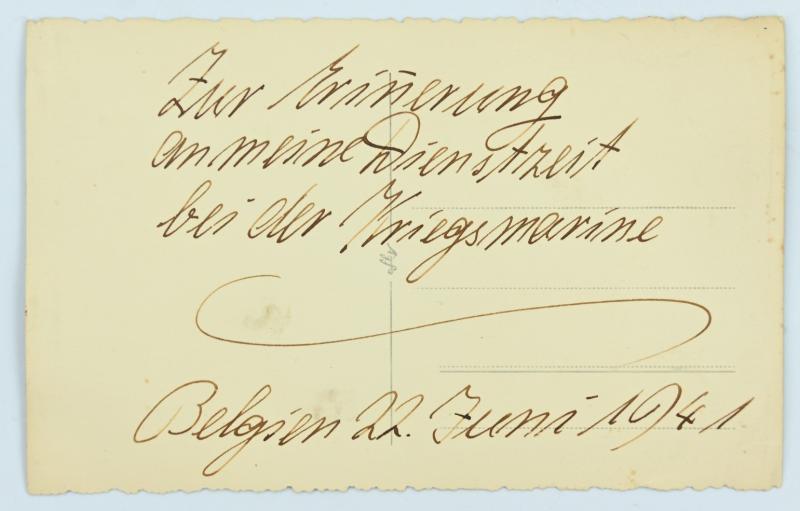 Zur Erin̄erung
an meine Dienstzeit
bei der Kriegsmarine
Belgien 22. Juni 1941